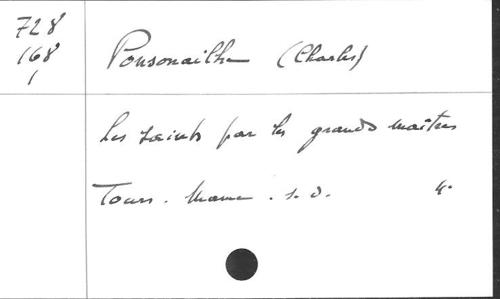 728
168
1
Ponsonailhe (Charles)
Les saints par les grands maîtres
Tours. Mame. s.d. 4°